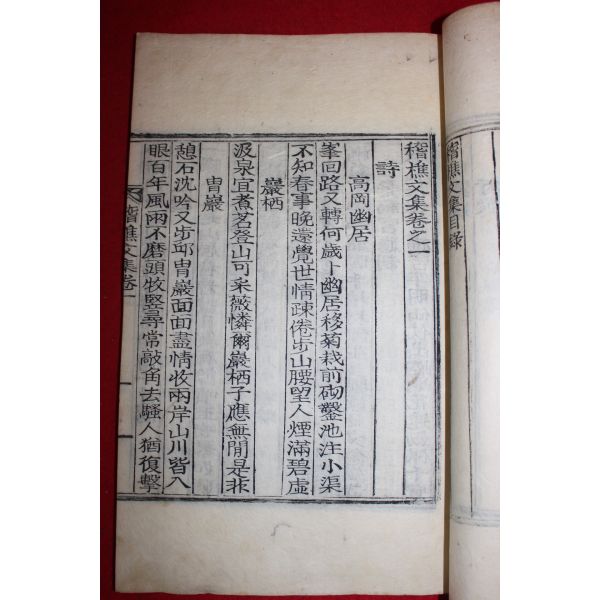 稽樵文集目錄
稽樵文集卷之一
詩
高岡幽居
峯回路又轉何歲卜幽居移菊栽前砌鑿池注小渠
不知春事晚還覺世情疎倦步山腰望人煙滿碧虛
巖栖
汲泉宜煮茗登山可采薇憐爾巖栖子應無閒是非
冑巖
憩石沈吟又步邱冑巖面面盡情收兩岸山川皆入
眼百年風雨不磨頭牧竪尋常敲角去騷人猶復擊
稽樵文集卷一